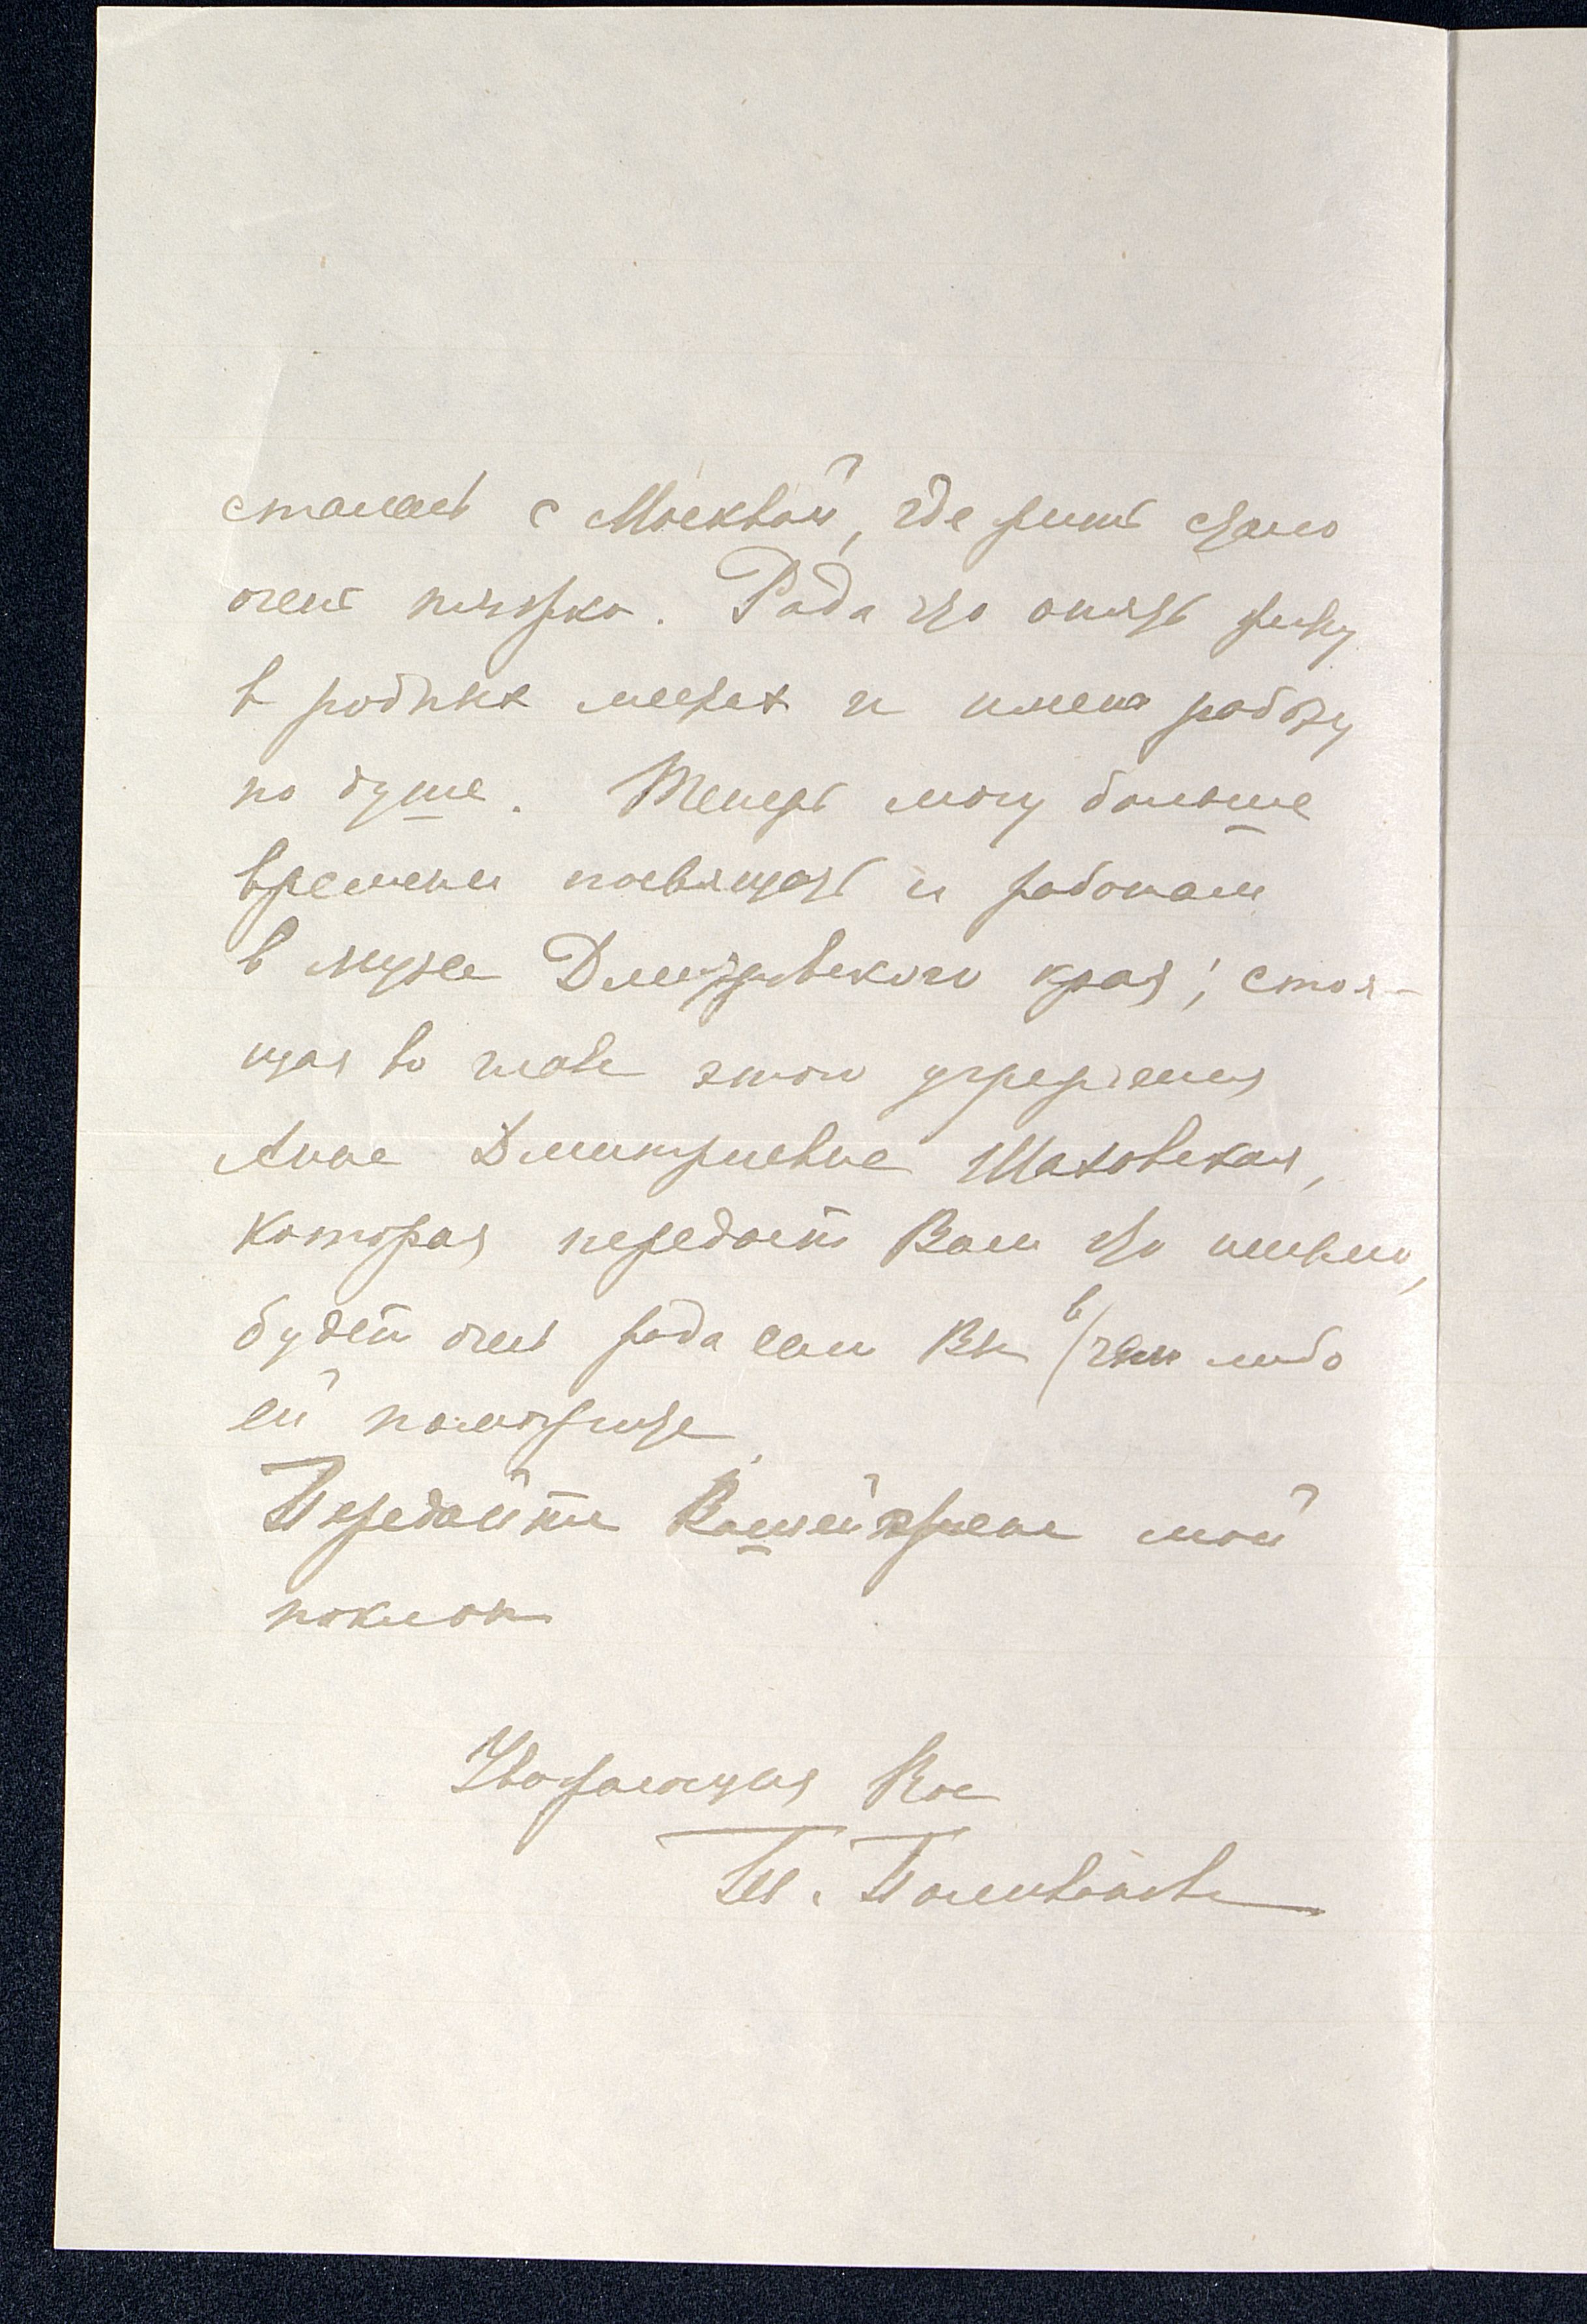 сталась с Москвой, где жить стало
очень тяжко. Рада что опять живу
в родных местах и имею работу
по душе. Теперь могу больше
времени посвящать и работам
в музее Дмитровского края; стоя-
щая во главе этого учреждения
Анна Дмитриевна Шаховская,
которая передаст Вам это письмо,
будет очень рада если Вы в чем либо
ей поможете.
Передайте Вашей жене мой
поклон
Уважающая Вас